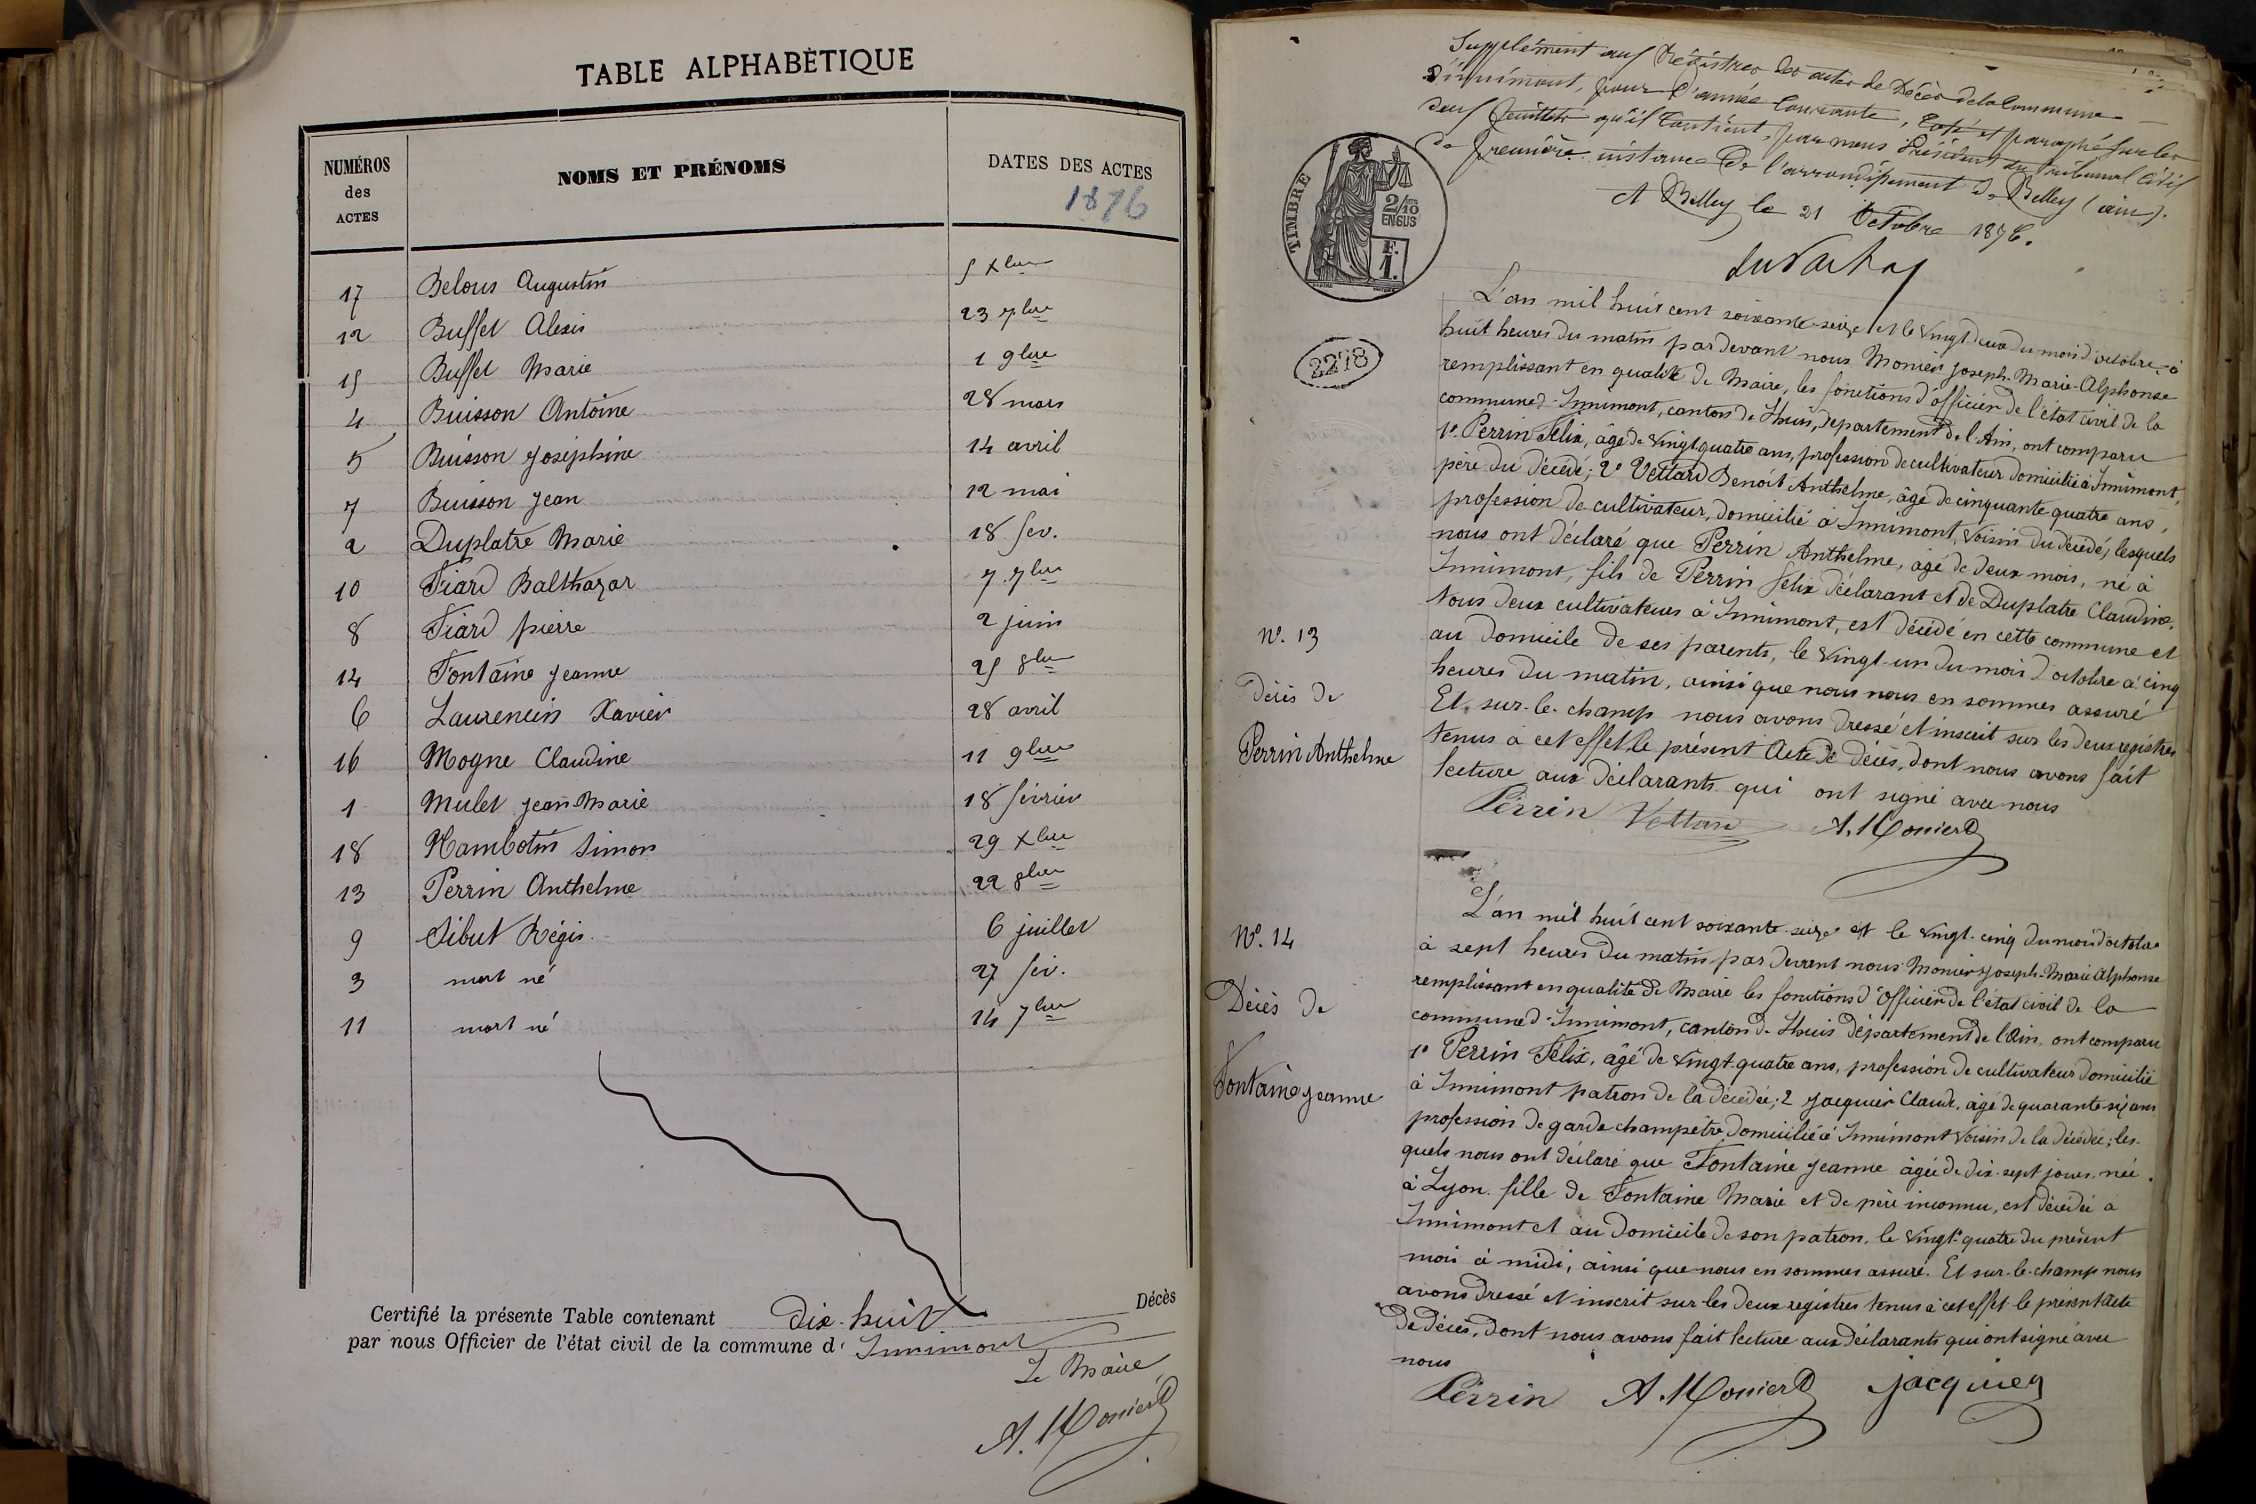 TABLE ALPHABÉTIQUE
NUMÉROS des ACTES
NOMS ET PRÉNOMS
DATES DES ACTES
1876
17 Belous Augustin 5 Xbre
12 Buffet Alexis 23 7bre
15 Buffet Marie 1 9bre
4 Buisson Antoine 28 mars
5 Buisson Joséphine 14 avril
7 Buisson Jean 12 mai
2 Duplatre Marie 18 fev.
10 Fiard Balthazar 7 7bre
8 Fiard pierre 2 juin
14 Fontaine Jeanne 25 8bre
6 Laurencin Xavier 28 avril
16 Mogne Claudine 11 9bre
1 Mulet Jean Marie 18 février
18 Nambotin Simon 29 Xbre
13 Perrin Anthelme 22 8bre
9 Sibut Régis 6 juillet
3 mort né 27 fév.
11 mort né 14 7bre
Certifié la présente Table contenant dix-huit Décès
par nous Officier de l'état civil de la commune d' Innimont
Le Maire
A. Monier
Supplément aux Régistres des actes de Décès de la Commune
d'innimont, pour l'année Courante, Coté et paraphé sur les
deux feuillets qu'il Contient, par nous Président du Tribunal Civil
de première instance de l'arrondissement de Belley (ain).
A Belley le 21 Octobre 1876.
TIMBRE
2/10 EN SUS
F.
1.
2278
L'an mil huit cent soixante-seize et le vingt deux du mois d'octobre, à
huit heures du matin par devant nous Monier Joseph-Marie-Alphonse
remplissant en qualité de Maire, les fonctions d'officier de l'état civil de la
commune d'Innimont, canton de Lhuis, département de l'Ain, ont comparu
1° Perrin Félix, âgé de vingt quatre ans, profession de cultivateur domicilié à Innimont,
père du décédé; 2° Vettard Benoît Anthelme, âgé de cinquante quatre ans,
profession de cultivateur, domicilié à Innimont, voisin du décédé, lesquels
nous ont déclaré que Perrin Anthelme, âgé de deux mois, né à
Innimont, fils de Perrin félix déclarant et de Duplatre Claudine,
tous deux cultivateurs à Innimont, est décédé en cette commune et
au domicile de ses parents, le vingt-un du mois d'octobre à cinq
heures du matin, ainsi que nous nous en sommes assuré
Et sur-le-champ nous avons dressé et inscrit sur les deux registres
tenus à cet effet, le présent Acte de décès, dont nous avons fait
lecture aux déclarants qui ont signé avec nous
Perrin Vettard A. Monier
N°. 13
Décès de
Perrin Anthelme
N°. 14
Décès de
Fontaine Jeanne
L'an mil huit cent soixante-seize et le vingt-cinq du mois d'octobre
à sept heures du matin par devant nous Monier Joseph-Marie Alphonse
remplissant en qualité de Maire les fonctions d'Officier de l'état civil de la
commune d'Innimont, canton de Lhuis département de l'Ain, ont comparu
1° Perrin Félix, âgé de vingt-quatre ans, profession de cultivateur domicilié
à Innimont patron de la décédée; 2 Jacquier Claude, âgé de quarante-six ans
profession de garde champêtre, domicilié à Innimont voisin de la décédée; les-
quels nous ont déclaré que Fontaine Jeanne âgée de dix-sept jours, née
à Lyon, fille de Fontaine Marie et de père inconnu, est décédée à
Innimont et au domicile de son patron, le vingt-quatre du présent
mois à midi, ainsi que nous en sommes assuré. Et sur-le-champ nous
avons dressé et inscrit sur les deux registres tenus à cet effet le présent Acte
de décès, dont nous avons fait lecture aux déclarants qui ont signé avec
nous
Perrin A. Monier Jacquier